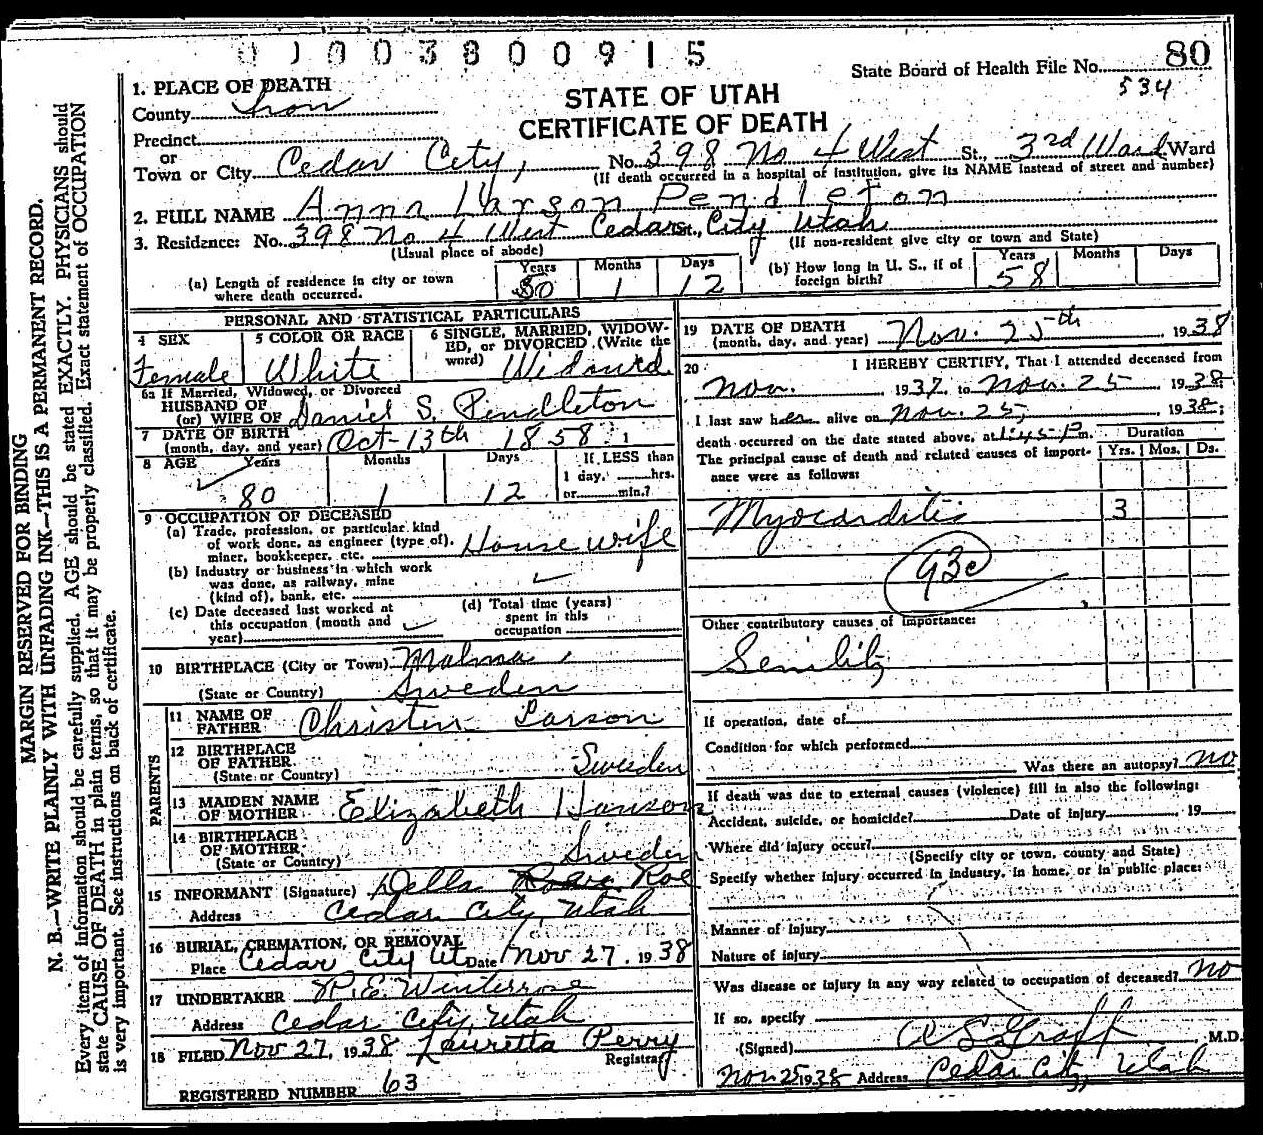 0 1 0 0 3 8 0 0 9 1 5
State Board of Health File No. 80
534
1. PLACE OF DEATH
STATE OF UTAH
CERTIFICATE OF DEATH
County Iron
Precinct
or
Town or City Cedar City, No. 398 No 4 West St., 3rd Ward Ward
(If death occurred in a hospital or institution, give its NAME instead of street and number)
2. FULL NAME Anna Larson Pendleton
3. Residence: No. 398 No 4 West Cedar St., City Utah
(Usual place of abode) (If non-resident give city or town and State)
(a) Length of residence in city or town where death occurred. Years 50 Months 1 Days 12
(b) How long in U. S., if of foreign birth? Years 58 Months Days
PERSONAL AND STATISTICAL PARTICULARS
4 SEX Female
5 COLOR OR RACE White
6 SINGLE, MARRIED, WIDOWED, or DIVORCED (Write the word) Widowed
6a If Married, Widowed, or Divorced
HUSBAND OF
(or) WIFE OF Daniel S. Pendleton
7 DATE OF BIRTH
(month, day, and year) Oct-13th 1858
8 AGE Years 80 Months 1 Days 12 If LESS than 1 day, hrs. or min.?
9 OCCUPATION OF DECEASED
(a) Trade, profession, or particular kind
of work done, as engineer (type of),
miner, bookkeeper, etc. House wife
(b) Industry or business in which work
was done, as railway, mine
(kind of), bank, etc.
(c) Date deceased last worked at
this occupation (month and
year)
(d) Total time (years)
spent in this
occupation
10 BIRTHPLACE (City or Town) Malma,
(State or Country) Sweden
PARENTS
11 NAME OF
FATHER Christen Larson
12 BIRTHPLACE
OF FATHER
(State or Country) Sweden
13 MAIDEN NAME
OF MOTHER Elizabeth Hanson
14 BIRTHPLACE
OF MOTHER
(State or Country) Sweden
15 INFORMANT (Signature) Della Roe
Address Cedar City, Utah
16 BURIAL, CREMATION, OR REMOVAL
Place Cedar City Ut Date Nov 27, 1938
17 UNDERTAKER P.E. Winterrose
Address Cedar City, Utah
18 FILED Nov 27, 1938 Lauretta Perry
Registrar
REGISTERED NUMBER 63
19 DATE OF DEATH
(month, day, and year) Nov. 25th 1938
20 I HEREBY CERTIFY, That I attended deceased from
Nov. 1937 to Nov. 25 1938;
I last saw her alive on Nov. 25, 1938;
death occurred on the date stated above, at 1:45 P m.
Duration
The principal cause of death and related causes of importance were as follows: Yrs. Mos. Ds.
Myocarditis 3
93c
Other contributory causes of importance:
Senility
If operation, date of
Condition for which performed
Was there an autopsy? no
If death was due to external causes (violence) fill in also the following:
Accident, suicide, or homicide? Date of injury 19
Where did injury occur?
(Specify city or town, county and State)
Specify whether injury occurred in industry, in home, or in public place:
Manner of injury
Nature of injury
Was disease or injury in any way related to occupation of deceased? no
If so, specify
(Signed) A S Graff M.D.
Nov 25 1938 Address Cedar City, Utah
MARGIN RESERVED FOR BINDING
N. B.—WRITE PLAINLY WITH UNFADING INK—THIS IS A PERMANENT RECORD.
Every item of information should be carefully supplied. AGE should be stated EXACTLY. PHYSICIANS should
state CAUSE OF DEATH in plain terms, so that it may be properly classified. Exact statement of OCCUPATION
is very important. See instructions on back of certificate.